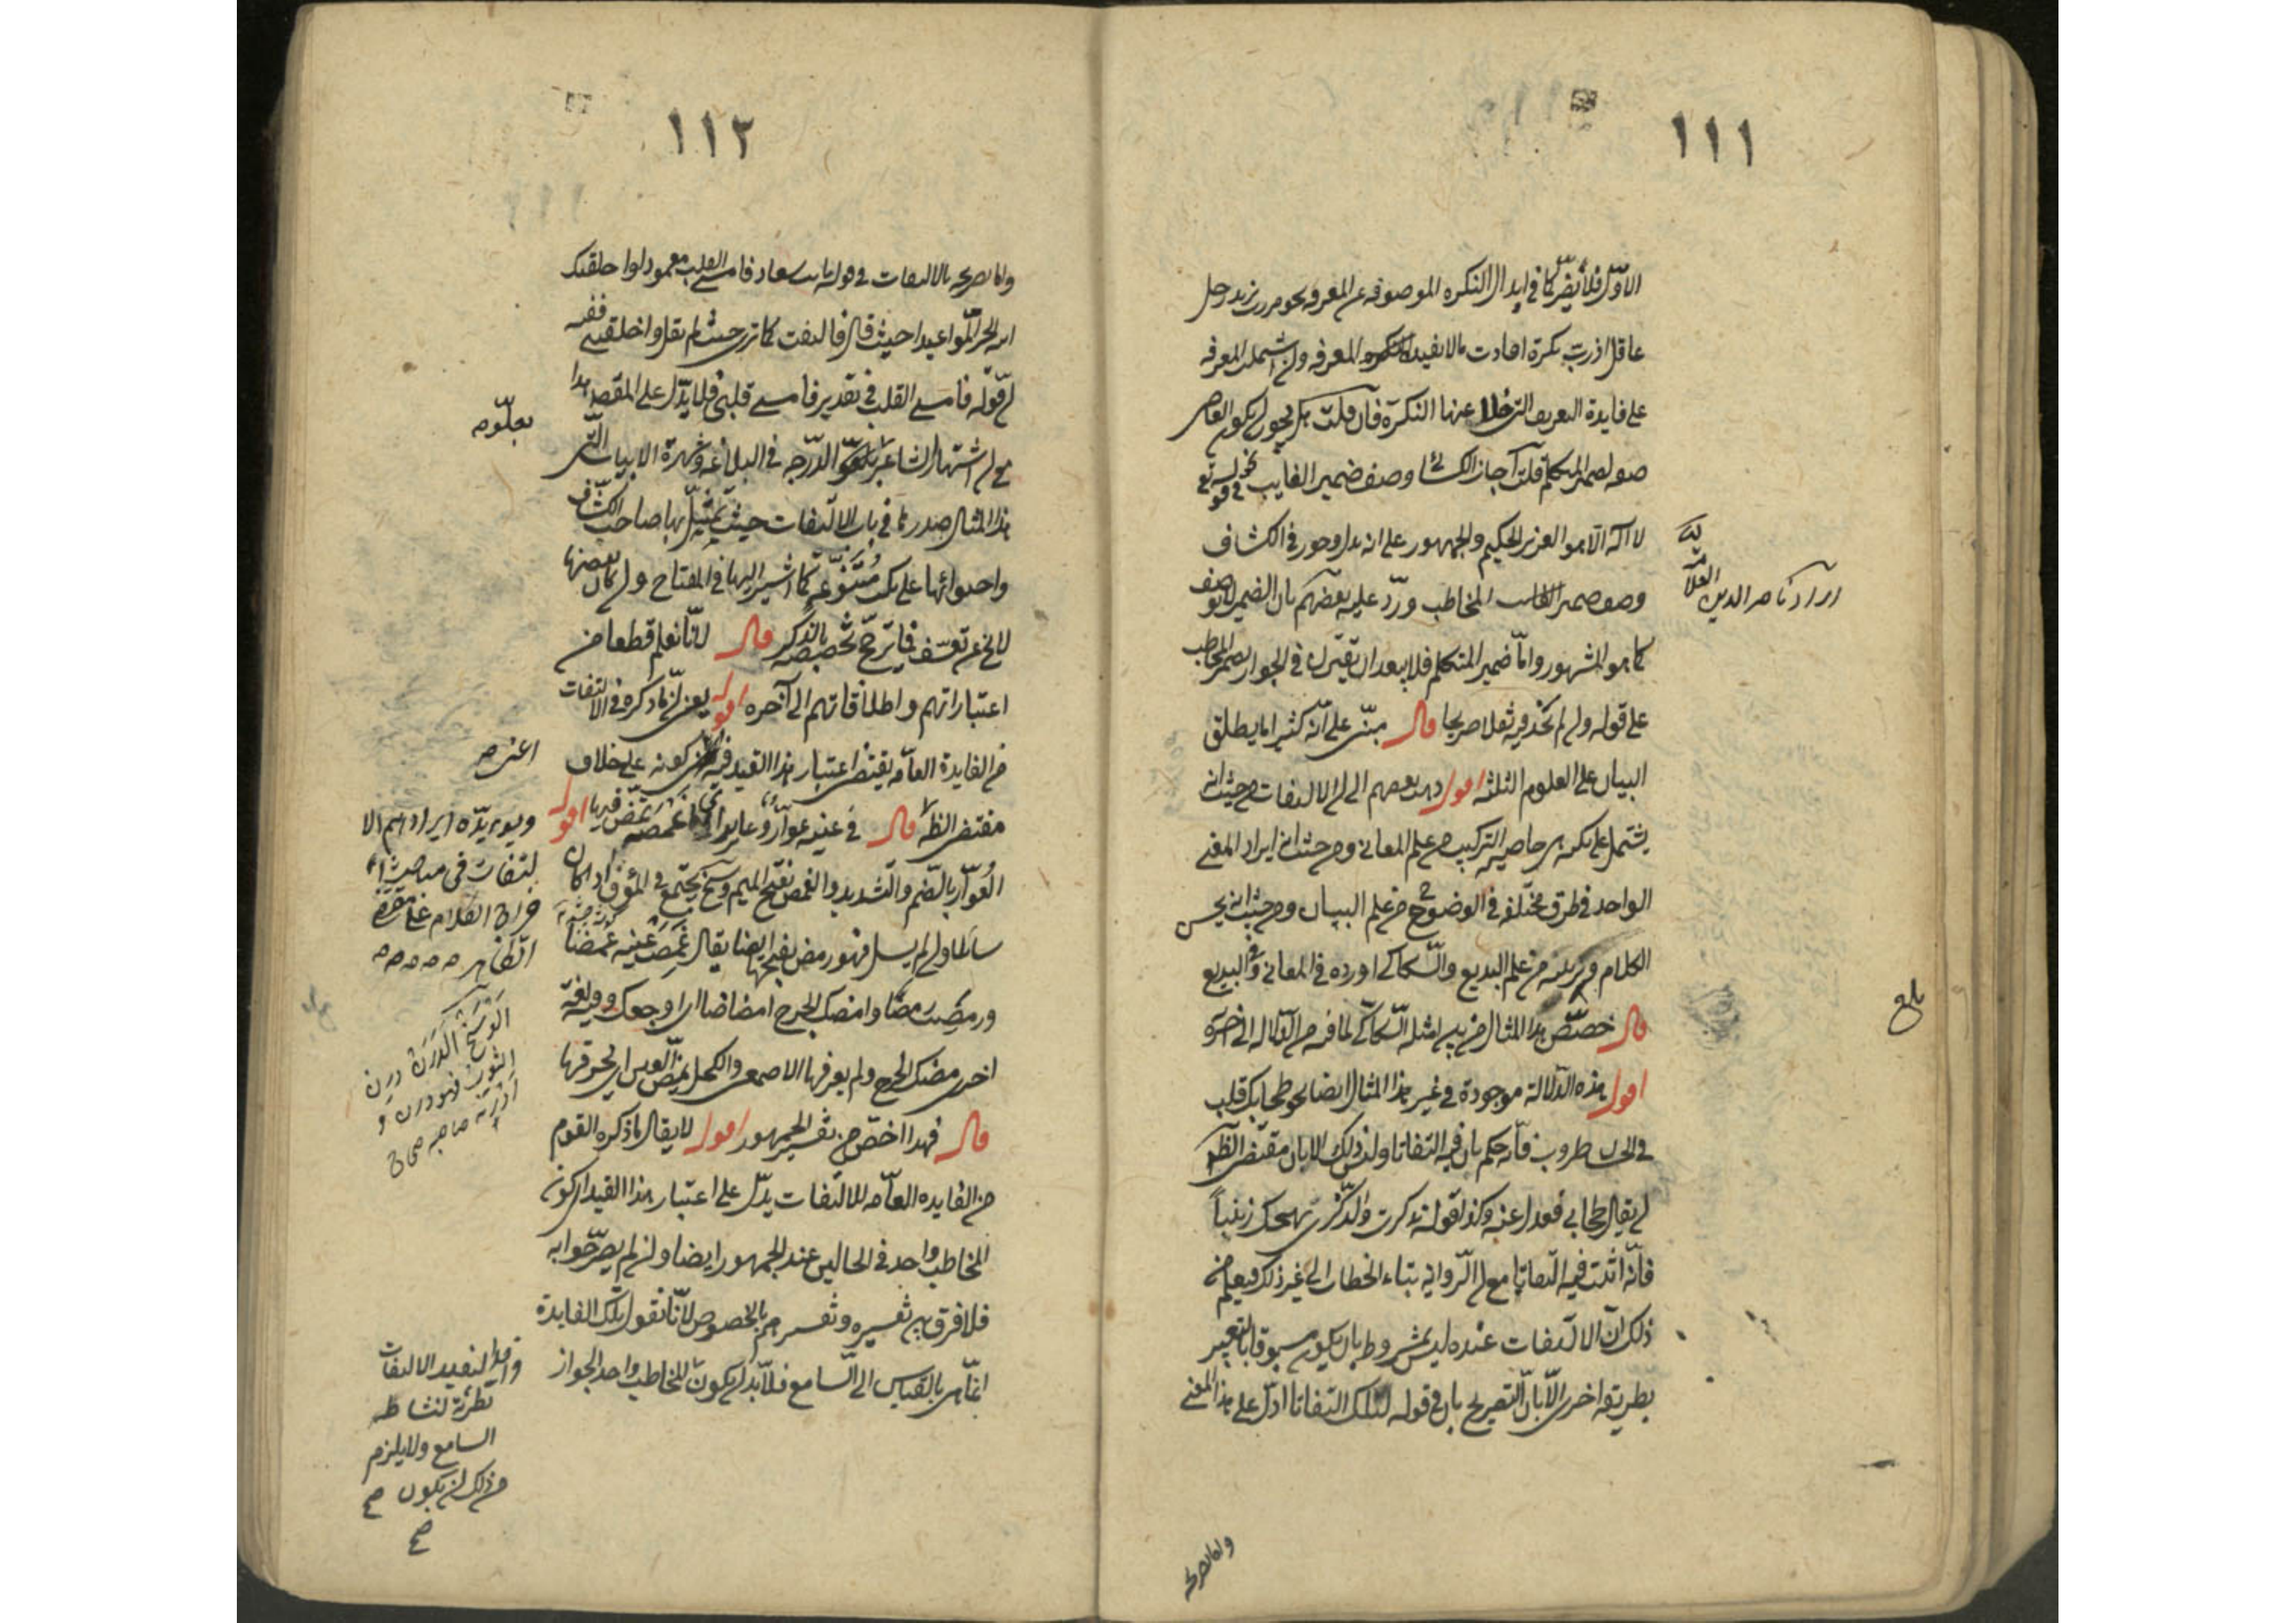 ١١١
الاول فلا يضر كما في ابدال النكره الموصوفه عن المعرفه نحو مررت بزيد رجل
عاقل اذ رب نكرة افادت ما لا يفيده المعرفه وان اشتمل المعرفه
على فايدة التعريف التي خلا عنها النكرة فان قلت هل يجوز ان يكون
صفه لضمير المتكلم قلت اجاز الكسائي وصف ضمير الغايب في قوله تع
لا اله الا هو العزيز الحكيم والجمهور على انه بدل وجوز في الكشاف
وصف ضمير المخاطب ورد عليه بعضهم بان الضمير لا يوصف
كما هو المشهور واما ضمير المتكلم فلا يبعد ان يقترن في الجواز بضمير المخاطب
على قوله وان لم نجد فيه نقلا صريحا قال مبني على انه كثيرا ما يطلق
البيان على العلوم الثلثه اقول ذهب بعضهم الى ان الالتفات من حيث انه
يشتمل على نكته هي خاصية التركيب من علم المعاني ومن حيث انه ايراد المعنى
الواحد في طرق مختلفه في الوضوح من علم البيان ومن حيث انه يحسن
الكلام ويزينه من علم البديع والسكاكي اورده في المعاني وفي البديع
قال خصص هذا المثال من بين امثله السكاكي لما فيه من الدلاله الى اخره
اقول هذه الدلالة موجودة في غير هذا المثال ايضا نحو طحا بك قلب
في الحسان طروب فانه حكم بان فيه التفاتا وليس ذلك الا بان مقتضى الظ
ان يقال طحا بي فعدل عنه وكذا قوله تذكرت والذكرى تهيجك زينبا
فانه اثبت فيه التفاتا مع ان الرواية بتاء الخطاب الى غير ذلك فيعلم من
ذلك ان الالتفات عنده ليس مشروطا بان يكون مسبوقا بالتعبير
بطريق اخر الا ان التصريح بان في قوله ليلك التفاتا ادل على هذا المعنى
ايراد ناصر الدين
العلامة
بلغ
واما تصريحه
١١٢
واما تصريحه بالالتفات في قوله بانت سعاد فامسى القلب معمودا واخلفتك
ابنة الحر المواعيدا حيث قال فالتفت كما ترى حيث لم يقل واخلفتني ففيه
ان قوله فامسى القلب في تقدير فامسى قلبي فلا يدل على المقصد هذا
مع ان اشتهار الشاعر بعلو الدرجه في البلاغه وشهرة الابيات التي
هذا المثال صدرها في باب الالتفات حيث تمثل بها صاحب الكشاف
واحتوائها على نكت متنوعه كما اشير اليها في المفتاح وان كان بعضها
لا يخ عن تعسف مما يرجح تخصيصه بالذكر قال لانا نعلم قطعا من
اعتباراتهم واطلاقاتهم الى آخره اقول يعني ان ما ذكره في الالتفات
من الفايدة العامه يقتضي اعتبار هذا القيد فيه كونه على خلاف
مقتضى الظ قال في عينه عوار وعاير اي غمصه تمض فيها اقول
العوار بالضم والتشديد والغمص بفتح الميم وسخ يجتمع في المؤق اذا كان
سائلا وان لم يسل فهو رمص بفتحها ايضا يقال غمصت عينه غمصا
ورمصت رمصا وامضك الجرح امضاضا اي اوجعك وفيه لغة
اخرى مضك الجرح ولم يعرفها الاصمعي والكحل يمض العين اي يحرقها
قال فهذا اخص من تفسير الجمهور اقول لا يقال ما ذكره القوم
من الفايده العامه للالتفات يدل على اعتبار هذا القيد اي كون
المخاطب واحد في الحالين عند الجمهور ايضا وان لم يصرحوا به
فلا فرق بين تفسيره وتفسيرهم بالخصوص لانا نقول تلك الفايدة
انما هي بالقياس الى السامع فلا بد ان يكون المخاطب واحدا لجواز
بعلو مه
اعني صح
ويؤيده ايرادهم الا
لتفات في مباحث
خراج الكلام على مقتضى
الظاهر
الوسخ الدرن درن
الثوب فهو درن و
ادرنه صاحبه صحاح
وايضا يفيد الالتفات
تطرئة لنشاط
السامع ولا يلزم
من ذلك ان يكون صح
صح